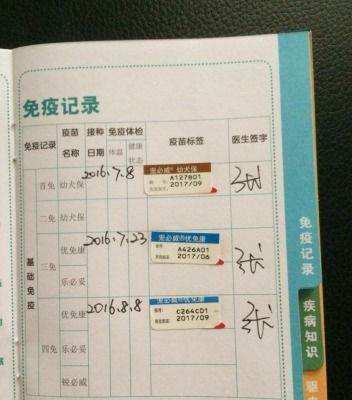 免疫记录
免疫记录 疫苗名称 接种日期 免疫体检 体温 健康状态 疫苗标签 医生签字
基础免疫
首免 幼犬保 2016.7.8
宠必威® 幼犬保
A127B01
2017/09
二免 幼犬保
三免 优免康 2016.7.23
宠必威®优免康
A426A01
2017/06
乐必妥
四免 优免康 2016.8.8
宠必威®优免康
C264C01
2017/09
乐必妥
锐必威
免疫记录
疾病知识
驱虫